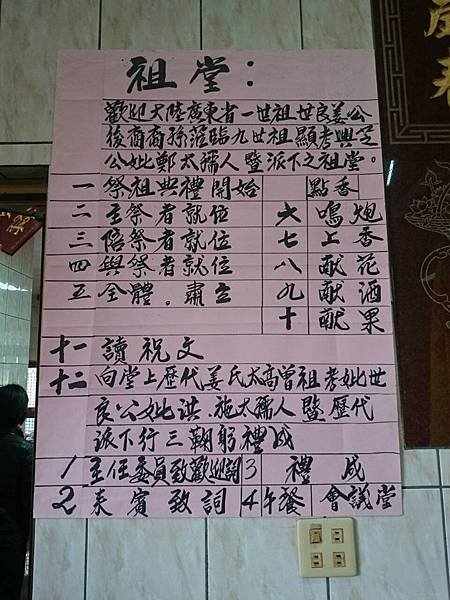 祖堂：
歡迎大陸廣東省一世祖世良姜公
後裔裔孫蒞臨九世祖顯考興芝
公妣鄭太孺人暨派下之祖堂。
一 祭祖典禮開始 點香
二 主祭者就位 六 鳴炮
三 陪祭者就位 七 上香
四 與祭者就位 八 献花
五 全體．肅立 九 献酒
十 献果
十一 讀祝文
十二 向堂上歷代姜氏太高曾祖考妣世
良公妣洪．施太孺人暨歷代
派下行三鞠躬禮成
1 主任委員致歡迎詞 3 禮成
2 來賓致詞 4 午餐 會議堂